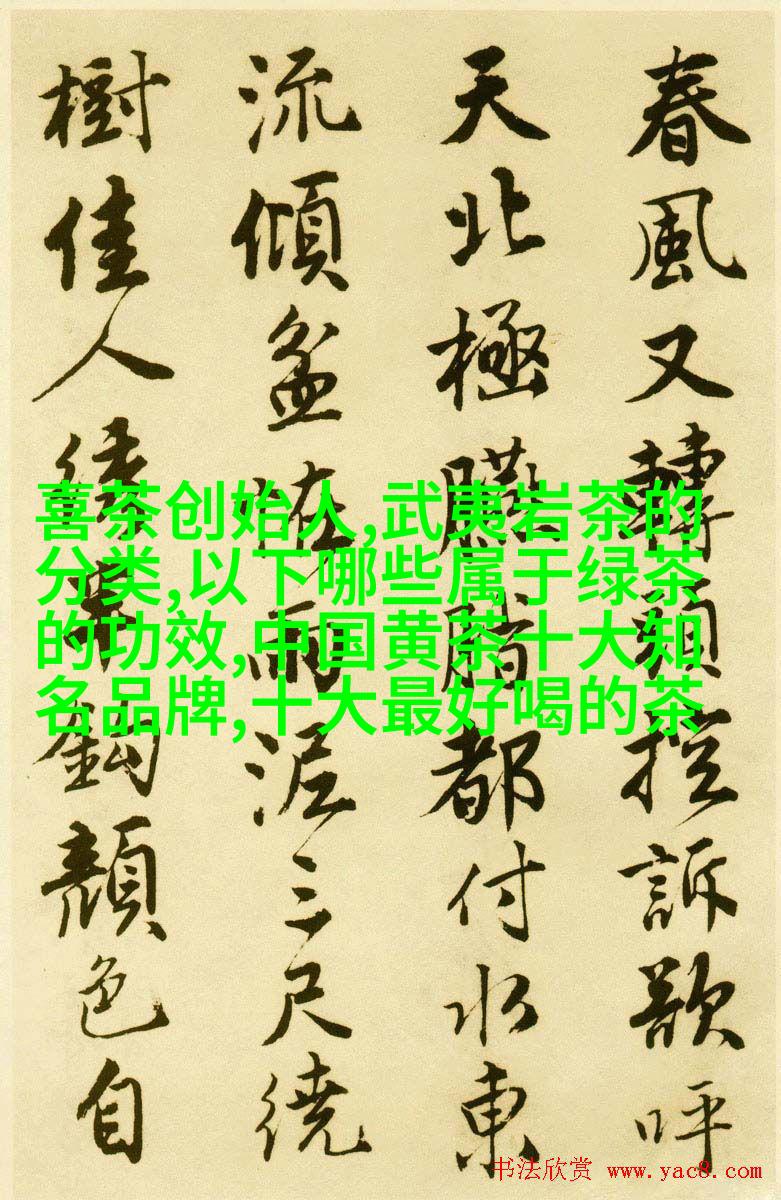 春風又轉頭控訴欲呼
天北極臙脂都付水東
流傾盆怯雨泥三尺繞
樹佳人繡半鉤顏色自
喜茶创始人,武夷岩茶的
分类,以下哪些属于绿茶
的功效,中国黄茶十大知
名品牌,十大最好喝的茶
书法欣赏 www.yac8.com